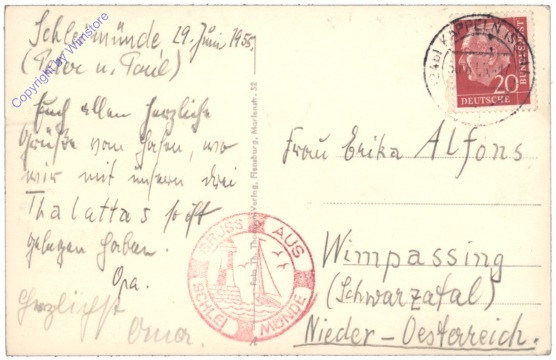 Schleimünde, 29. Juni 1955.
(Peter u. Paul)
Euch allen herzliche
Grüße vom Hafen, wo
wir mit unsern drei
Thalattas so oft
gelegen haben.
Opa.
Herzlichst
Oma.
Copyright by Wamstore
Verlag, Flensburg, Marienstr. 52
GRUSS AUS
SCHLEI MÜNDE
(24b) KAPPELN
20
DEUTSCHE BUNDESPOST
Frau Erika Alfons
Wimpassing
(Schwarzatal)
Nieder-Oesterreich.